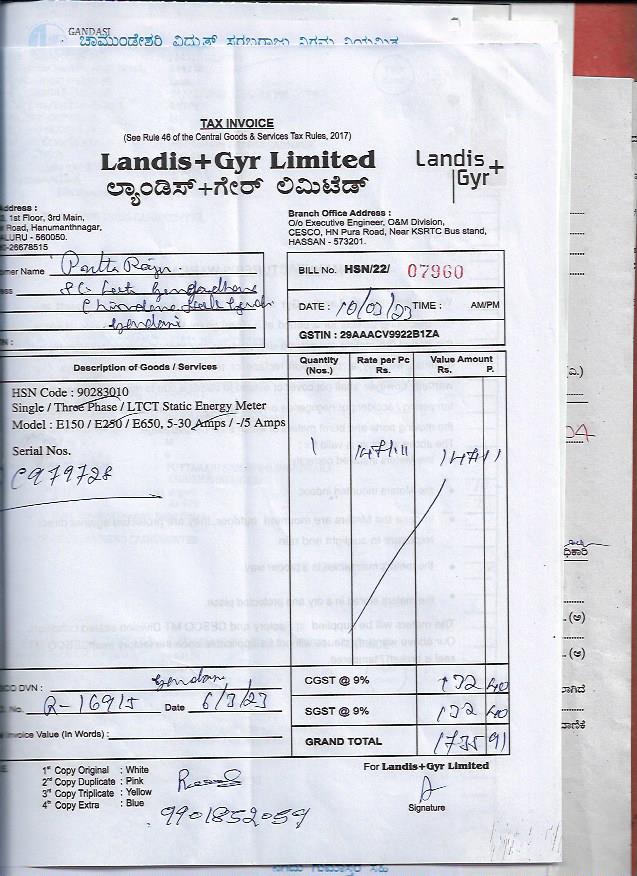 GANDASI
ಚಾಮುಂಡೇಶ್ವರಿ ವಿದ್ಯುತ್ ಸರಬರಾಜು ನಿಗಮ ನಿಯಮಿತ
TAX INVOICE
(See Rule 46 of the Central Goods & Services Tax Rules, 2017)
Landis+Gyr Limited
ಲ್ಯಾಂಡಿಸ್+ಗೇರ್ ಲಿಮಿಟೆಡ್
Landis+
Gyr
Address :
1st Floor, 3rd Main,
Road, Hanumanthnagar,
LURU - 560050.
0-26678515
Branch Office Address :
O/o Executive Engineer, O&M Division,
CESCO, HN Pura Road, Near KSRTC Bus stand,
HASSAN - 573201.
omer Name
BILL No. HSN/22/ 07960
DATE : 10/03/23 TIME : AM/PM
GSTIN : 29AAACV9922B1ZA
Description of Goods / Services Quantity (Nos.) Rate per Pc Rs. Value Amount Rs. P.
HSN Code : 90283010
Single / Three Phase / LTCT Static Energy Meter
Model : E150 / E250 / E650, 5-30 Amps / -/5 Amps
Serial Nos. 1 1471.11 1471 11
C979728
CO DVN :
CGST @ 9% 132 40
No. R-1691/5 Date 6/3/23
SGST @ 9% 132 40
Invoice Value (In Words) :
GRAND TOTAL 1735 91
1st Copy Original : White
2nd Copy Duplicate : Pink
3rd Copy Triplicate : Yellow
4th Copy Extra : Blue
9901852059
For Landis+Gyr Limited
Signature